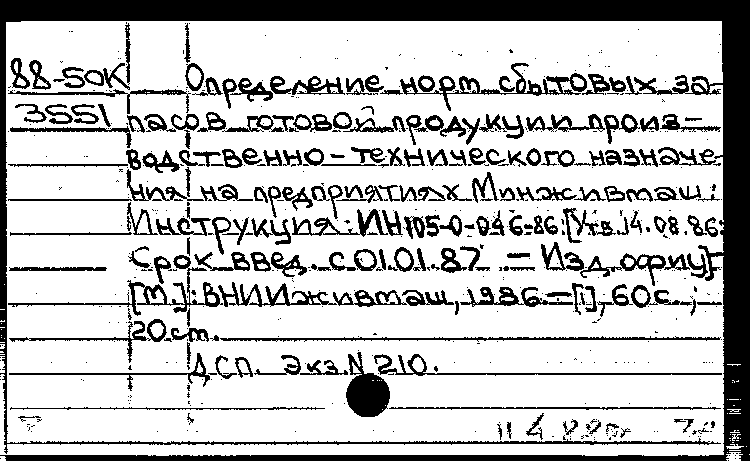 88-50К Определение норм сбытовых за-
3551 пасов готовой продукции произ-
водственно-технического назначе-
ния на предприятиях Минживмаш:
Инструкция: ИН 105-0-046-86: [Утв. 14.08.86:
Срок введ. с 01.01.87. — Изд. офиц.]
[М.]: ВНИИживмаш, 1986. — [1], 60 с. ;
20 cm.
ДСП. Экз. N 210.